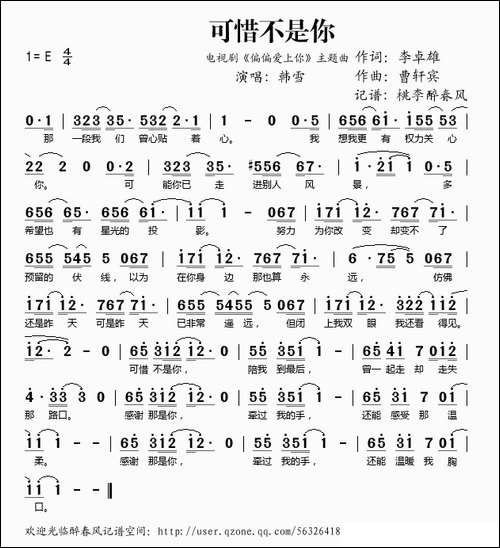 可惜不是你
1= E 4/4 电视剧《偏偏爱上你》主题曲 作词：李卓雄
演唱：韩雪 作曲：曹轩宾
记谱：桃李醉春风
0·1 | 323 35· 532 2·1 | 1 - 0 0·5 | 656 61· ·155 53 |
那 一段我 们 曾心贴 着 心。 我 想我更 有 权力关 心
22 2 0 0·2 | 323 35· #556 67· | 1·21 1 0 0·5 |
你。 可 能你已 走 进别人 风 景， 多
656 65· 656 61· | 11 1 - 067 | 171 12· 767 71· |
希望也 有 星光的 投 影。 努力 为你改 变 却变不 了
655 545 5 067 | 171 12· 767 71· | 6 ·75 5 067 |
预留的 伏 线，以为 在你身 边 那也算 永 远， 仿佛
171 12· 767 71· | 655 5455 5 067 | 171 12· 322 112 |
还是昨 天 可是昨 天 已非常 遥 远，但闭 上我双 眼 我还看 得见。
12·2 - 0 | 65 312 12· 0 | 55 351 1 0 | 65 41 7 012 |
可惜 不是你， 陪我 到最后， 曾一 起走 却 走失
4·33 3 0 | 65 312 12· 0 | 55 351 1 0 | 65 43 7 012 |
那 路口。 感谢 那是你， 牵过 我的手， 还能 感受 那 温
11 1 - 0 | 65 312 12· 0 | 55 351 1 0 | 65 43 7 012 |
柔。 感谢 那是你， 牵过 我的手， 还能 温暖 我 胸
11 1 - - ‖
口。
欢迎光临醉春风记谱空间：http://user.qzone.qq.com/56326418